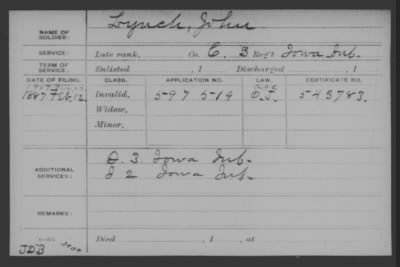 NAME OF SOLDIER: Lynch, John
SERVICE: Late rank, Co. C. 3 Reg't Iowa Inf.
TERM OF SERVICE: Enlisted , 1 Discharged , 1
DATE OF FILING. CLASS. APPLICATION NO. LAW. CERTIFICATE NO.
1887 Feb. 12. Invalid, 597 519 543783.
Widow,
Minor,
ADDITIONAL SERVICES: D. 3 Iowa Inf.
I 2 Iowa Inf.
REMARKS:
Died , 1 , at
JDB